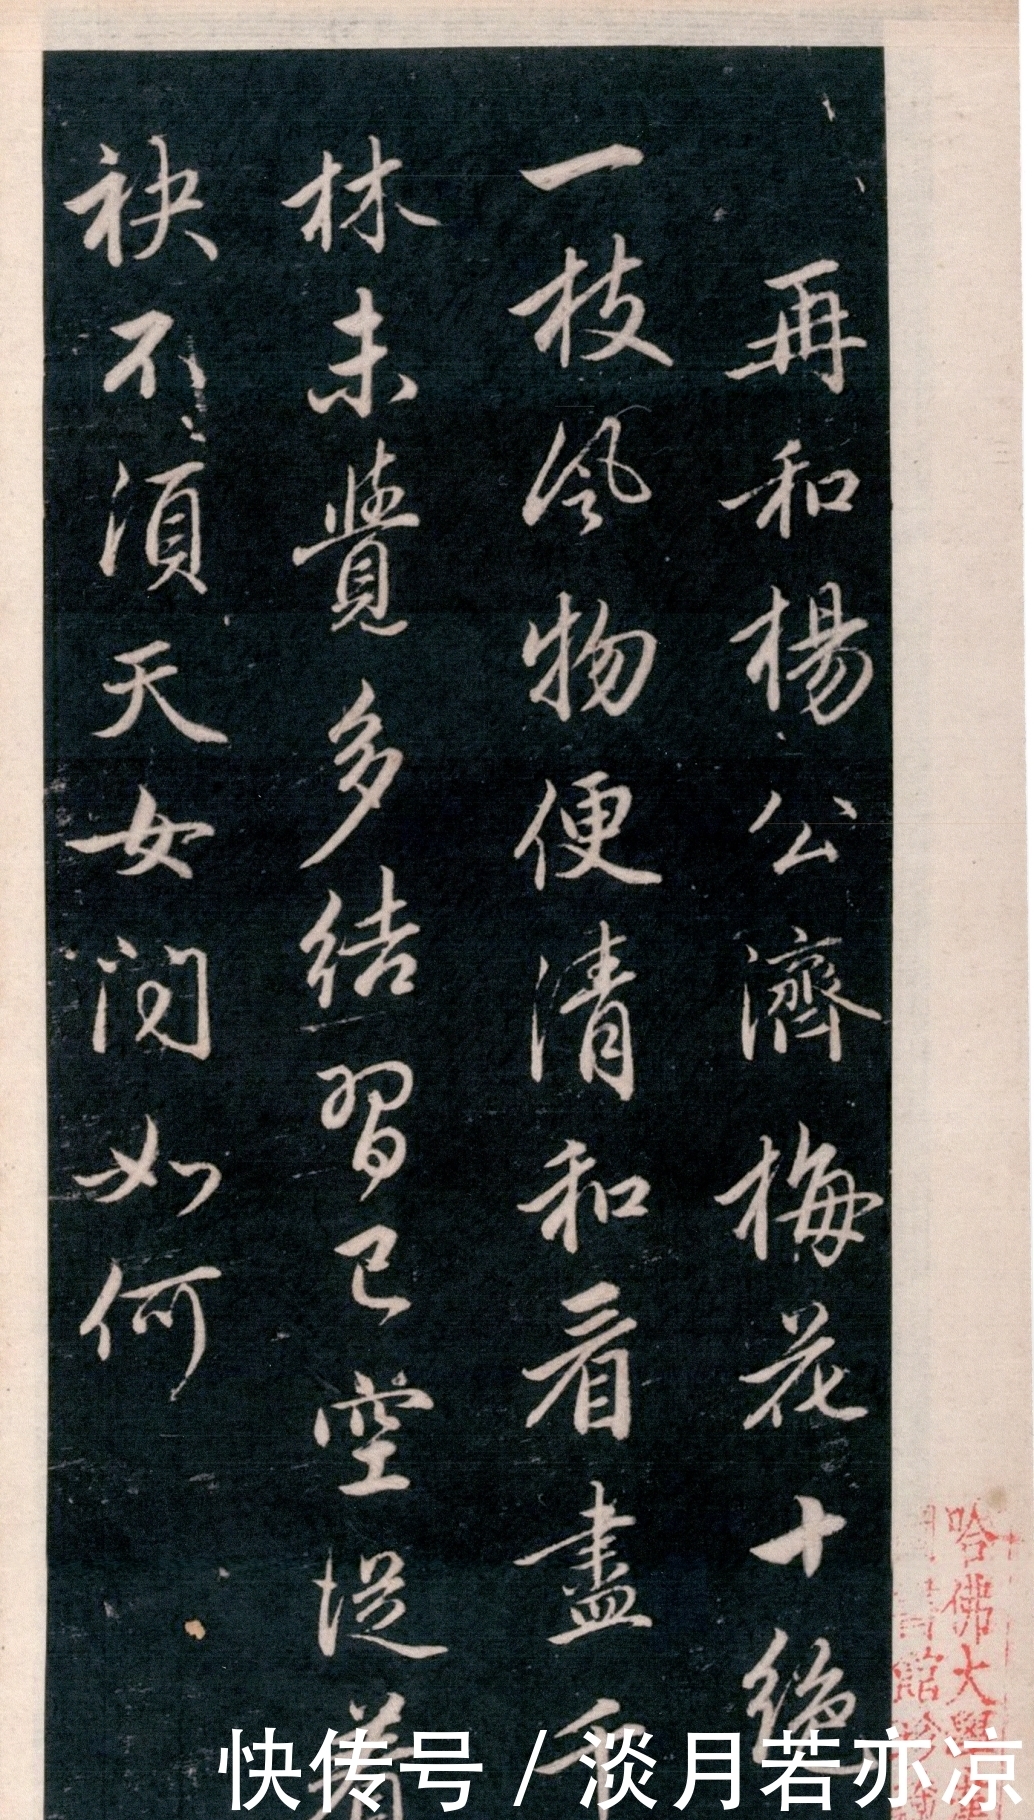 再和楊公濟梅花十絕
一枝風物便清和看盡千
林未覺多結習已空從着
袂不須天女問如何
哈佛大學
書館珍
快传号 / 淡月若亦凉